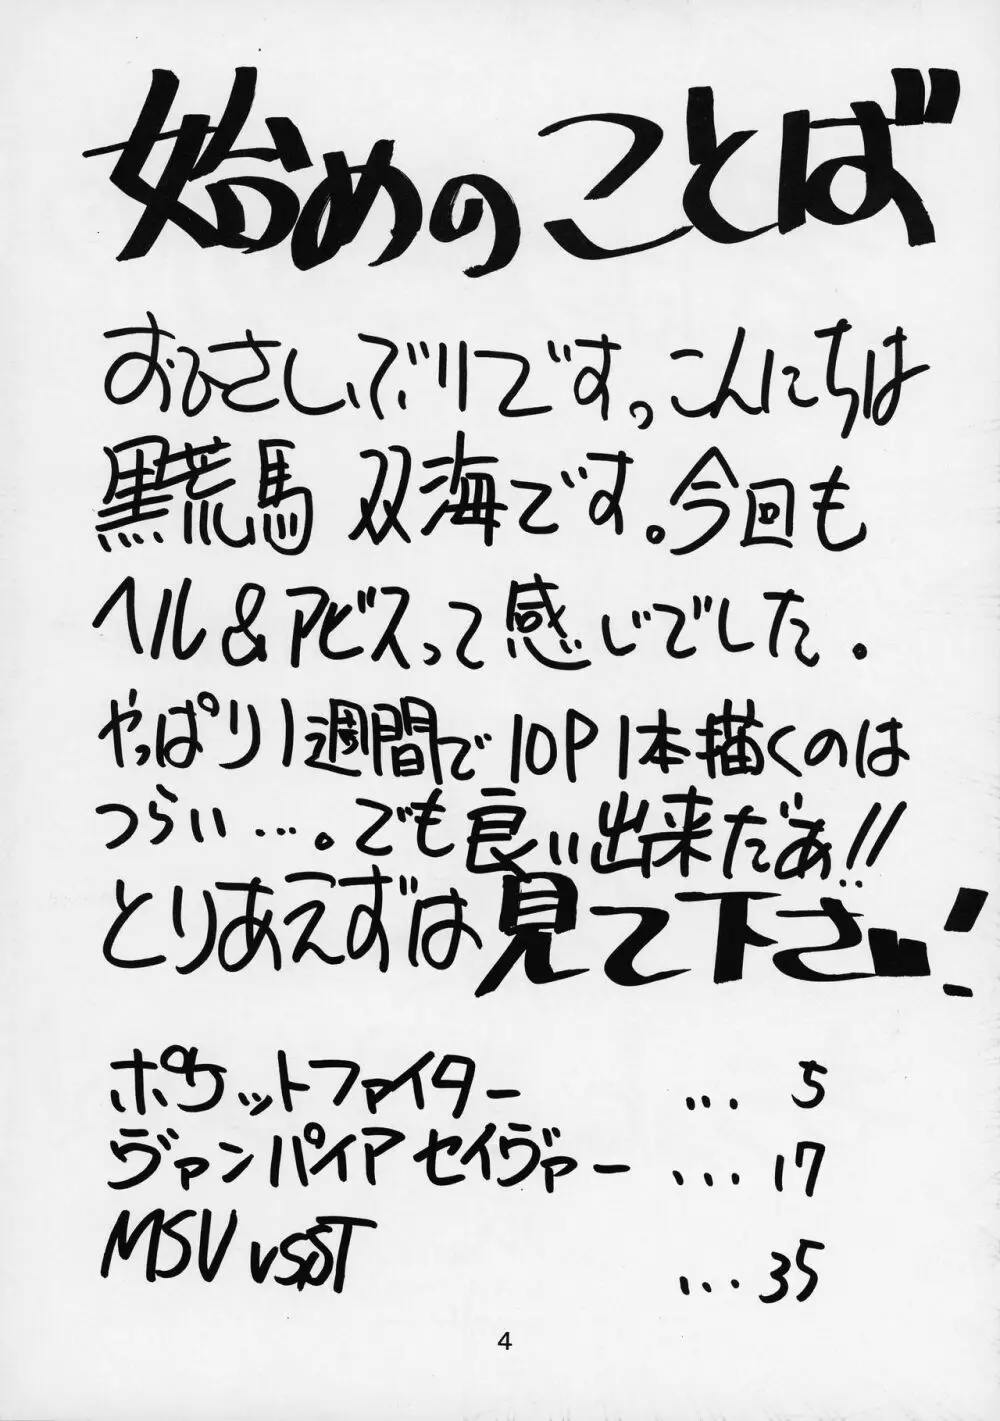 始めのことば
おひさしぶりです。こんにちは
黒荒馬 双海です。今回も
ヘル&アビスって感じでした.
やっぱり1週間で10P1本描くのは
つらい…。でも良い出来だぁ!!
とりあえずは見て下さい!
ポケットファイター ... 5
ヴァンパイア セイヴァー ... 17
MSV vs,ST ... 35
4